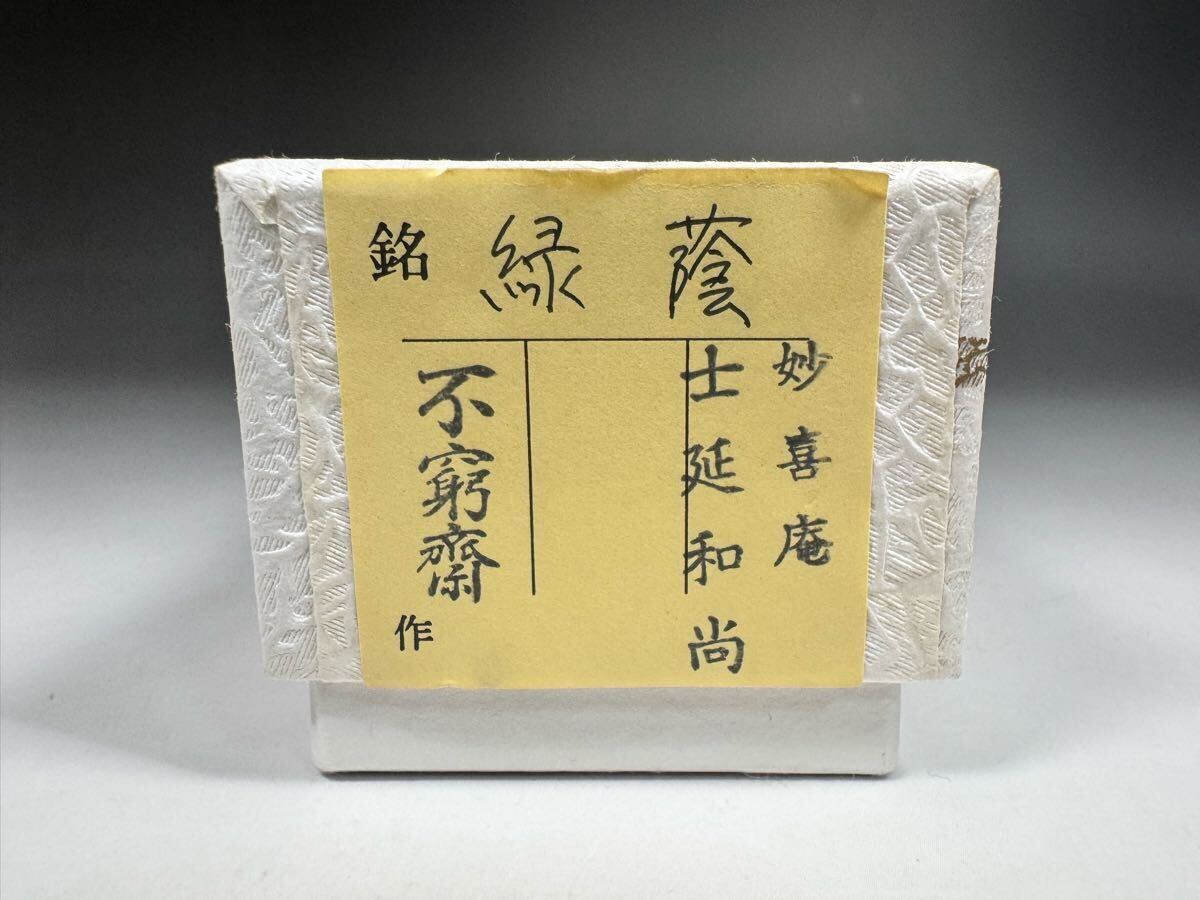 銘 緑蔭
妙喜庵
士延和尚
不窮齋
作